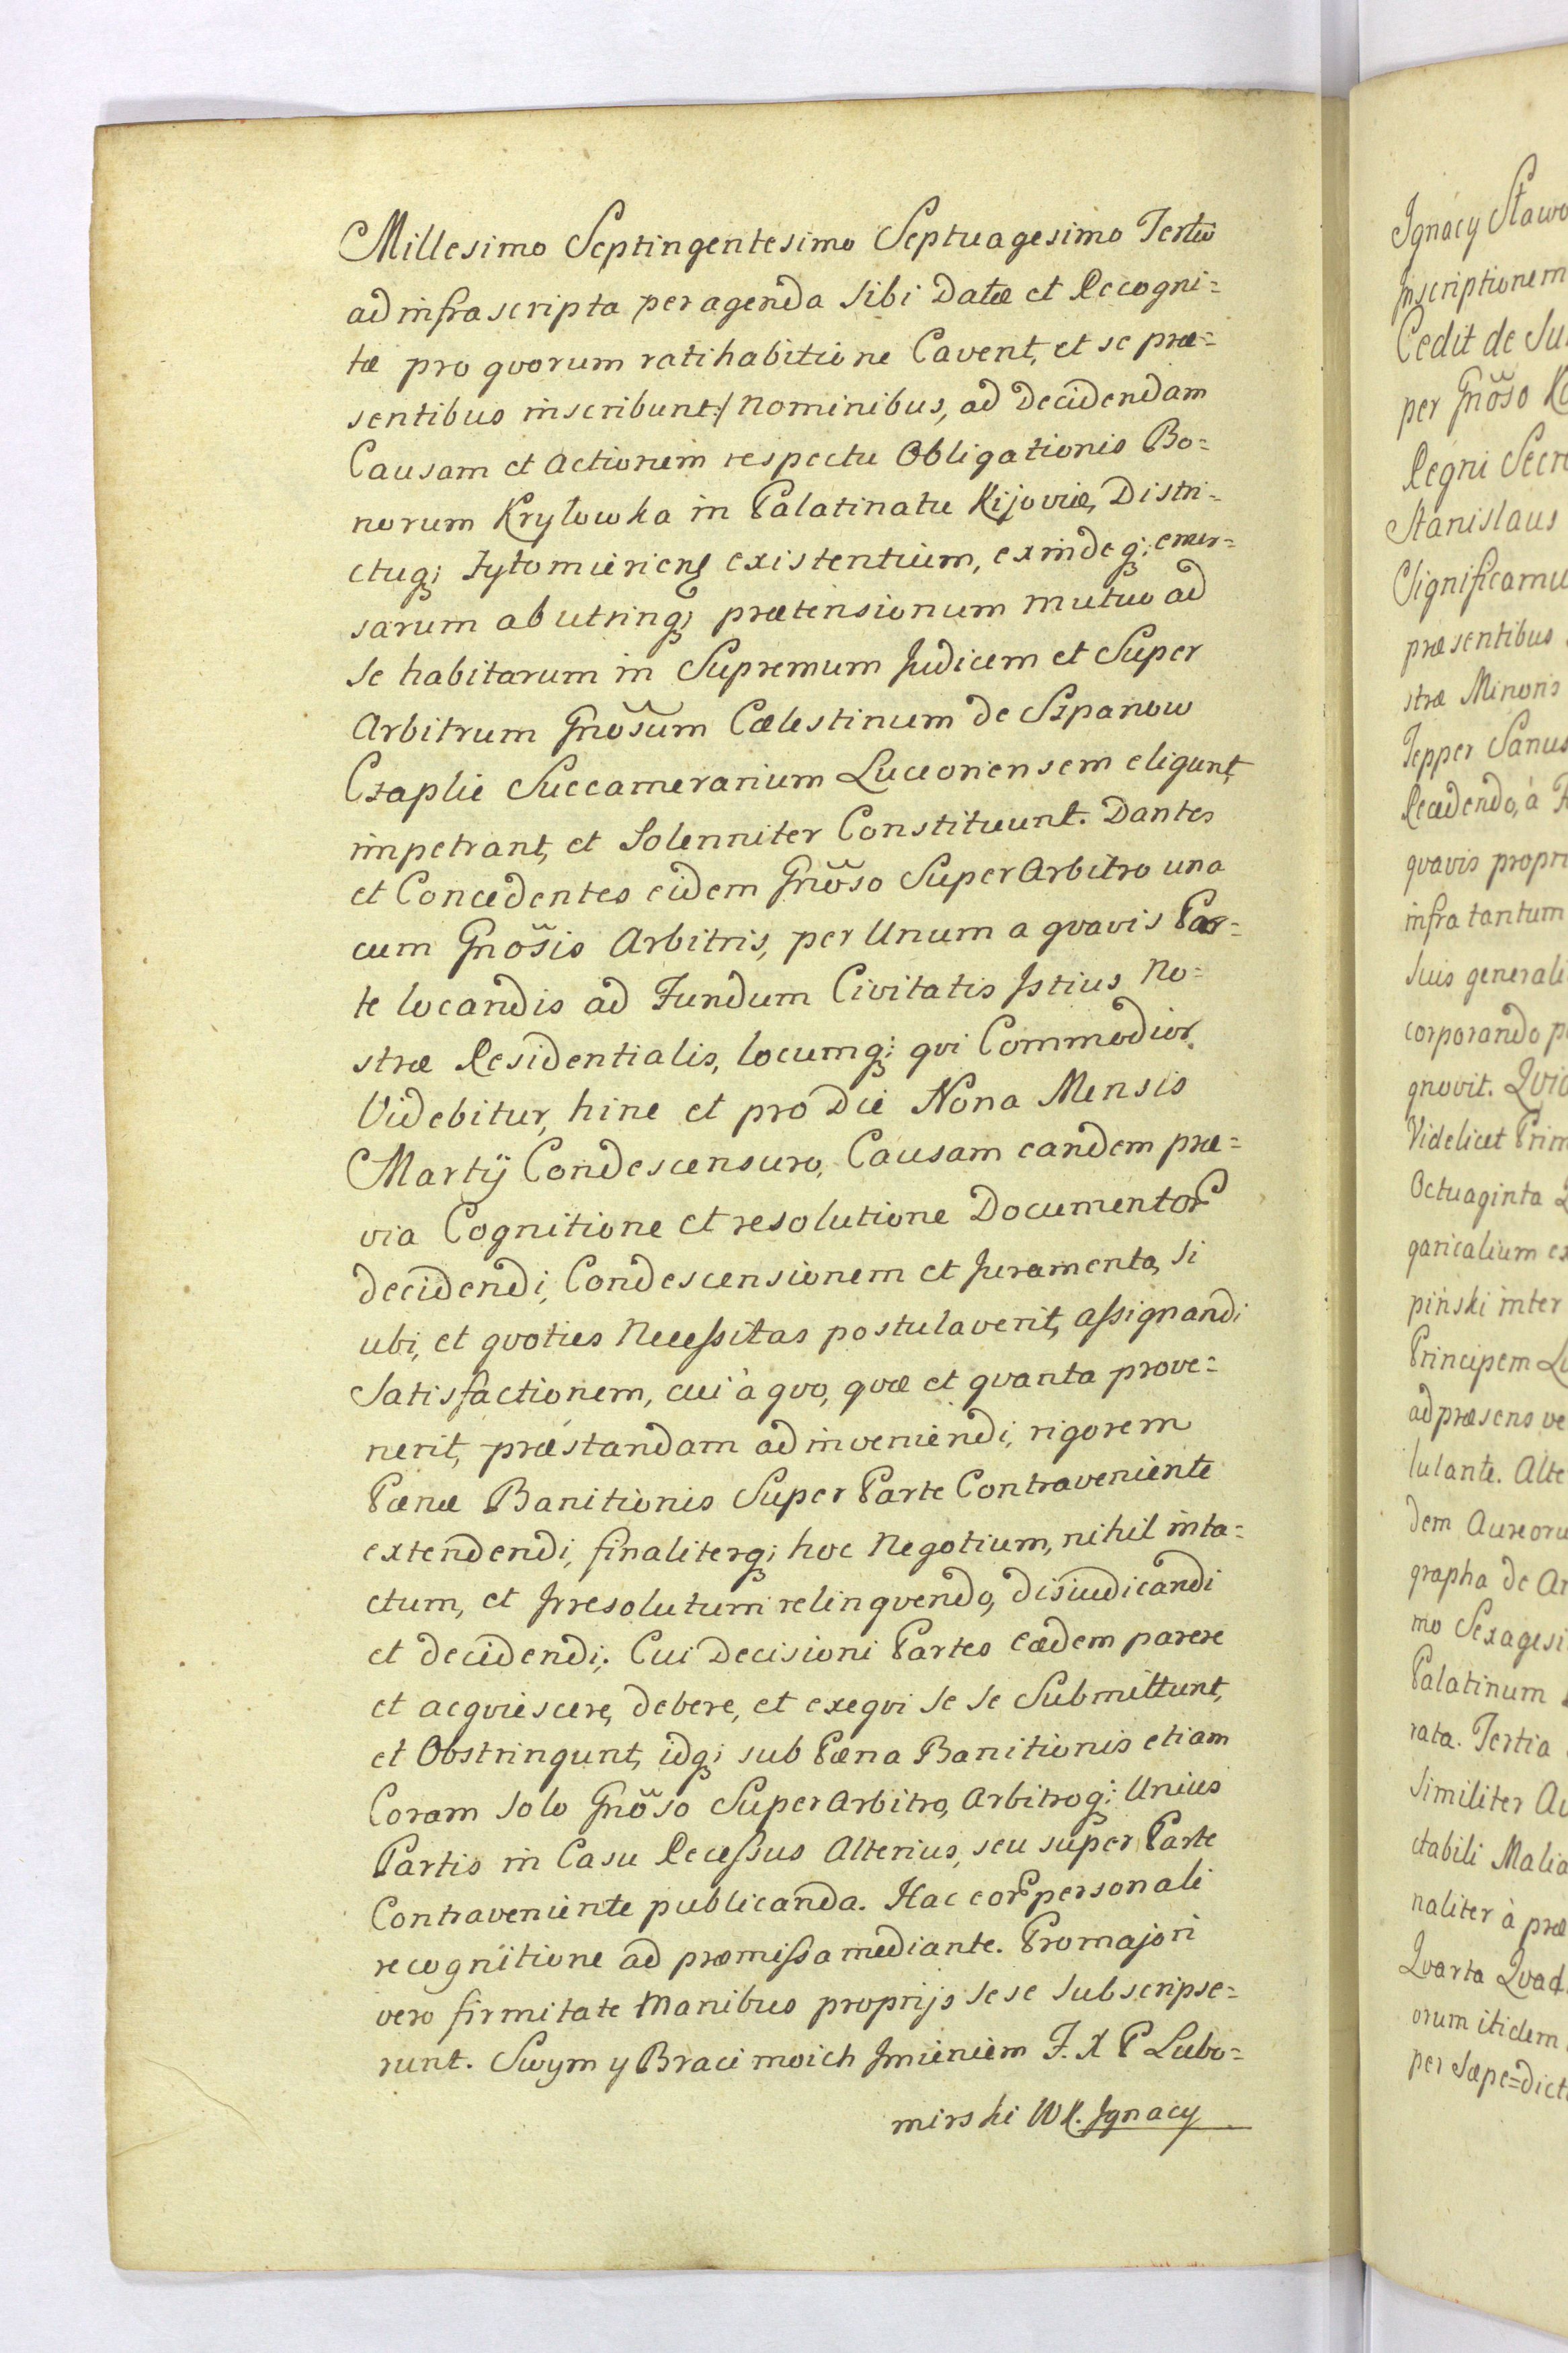 Millesimo Septingentesimo Septuagesimo Tertio
ad infrascripta peragenda sibi datæ et Recogni=
tæ pro qvorum ratihabitione Cavent, et se præ=
sentibus inscribunt:/ nominibus, ad decidendam
Causam et actionem respectu Obligationis Bo=
norum Kryłowka in Palatinatu Kijoviæ, Distri=
ctuq; Żytomieriens existentium, exindeq; emer=
sarum ab utrinq; prætensionum mutuo ad
se habitarum in Supremum Judicem et Super
Arbitrum Gnõsum Cælestinum de Szpanow
Czaplic Succamerarium Luceoriensem eligunt,
impetrant, et Solenniter Constituunt. Dantes
et Concedentes eidem Gnõso SuperArbitro una
cum Gnõsis Arbitris, per Unum a qvavis Par=
te locandis ad Fundum Civitatis Istius No=
stræ Residentialis, locumq; qvi Commodior
Videbitur, hinc et pro Die Nona Mensis
Martÿ Condescensuro, Causam eandem præ=
via Cognitione et resolutione Documentor
decidendi, Condescensionem et Juramenta, si
ubi, et qvoties Necessitas postulaverit, assignandi
Satisfactionem, cui à qvo, qvæ et qvanta prove=
nerit, præstandam adinveniendi, rigorem
Pænæ Banitionis Super Parte Contraveniente
extendendi, finaliterq; hoc Negotium, nihil inta=
ctum, et Irresolutum relinqvendo, disiudicandi
et decidendi; Cui Decisioni Partes eædem parere
et acqviescere, debere, et exeqvi se se Submittunt,
et Obstringunt, idq; sub Pæna Banitionis etiam
Coram solo Gnõso SuperArbitro, Arbitroq; Unius
Partis in Casu Recessus Alterius, seu super Parte
Contraveniente publicanda. Hac eor personali
recognitione ad præmissa mediante. Pro majori
vero firmitate Manibus proprijs sese subscripse=
runt. Swym y Braci moich Imieniem F. X P Lubo=
mirski WK. Ignacy
Ignacy Stawo
Inscriptionem
Cedit de Su
per Gnõso K
Regni Secr
Stanislaus
Significamu
præsentibus
stræ Minoris
Tepper Sanus
Recedendo, à F
qvavis propri
infra tantum
suis generali
corporando p
gnovit. Qvi
Videlicet Prim
Octuaginta
garicalium ex
piński inter
Principem Lu
ad præsens ve
lulante. Alte
dem Aureoru
grapha de An
mo Sexagesi
Palatinum
rata. Tertia
Similiter Au
ctabili Malia
naliter à præ
Qvarta Qvad
orum itidem
per sæpe=dict